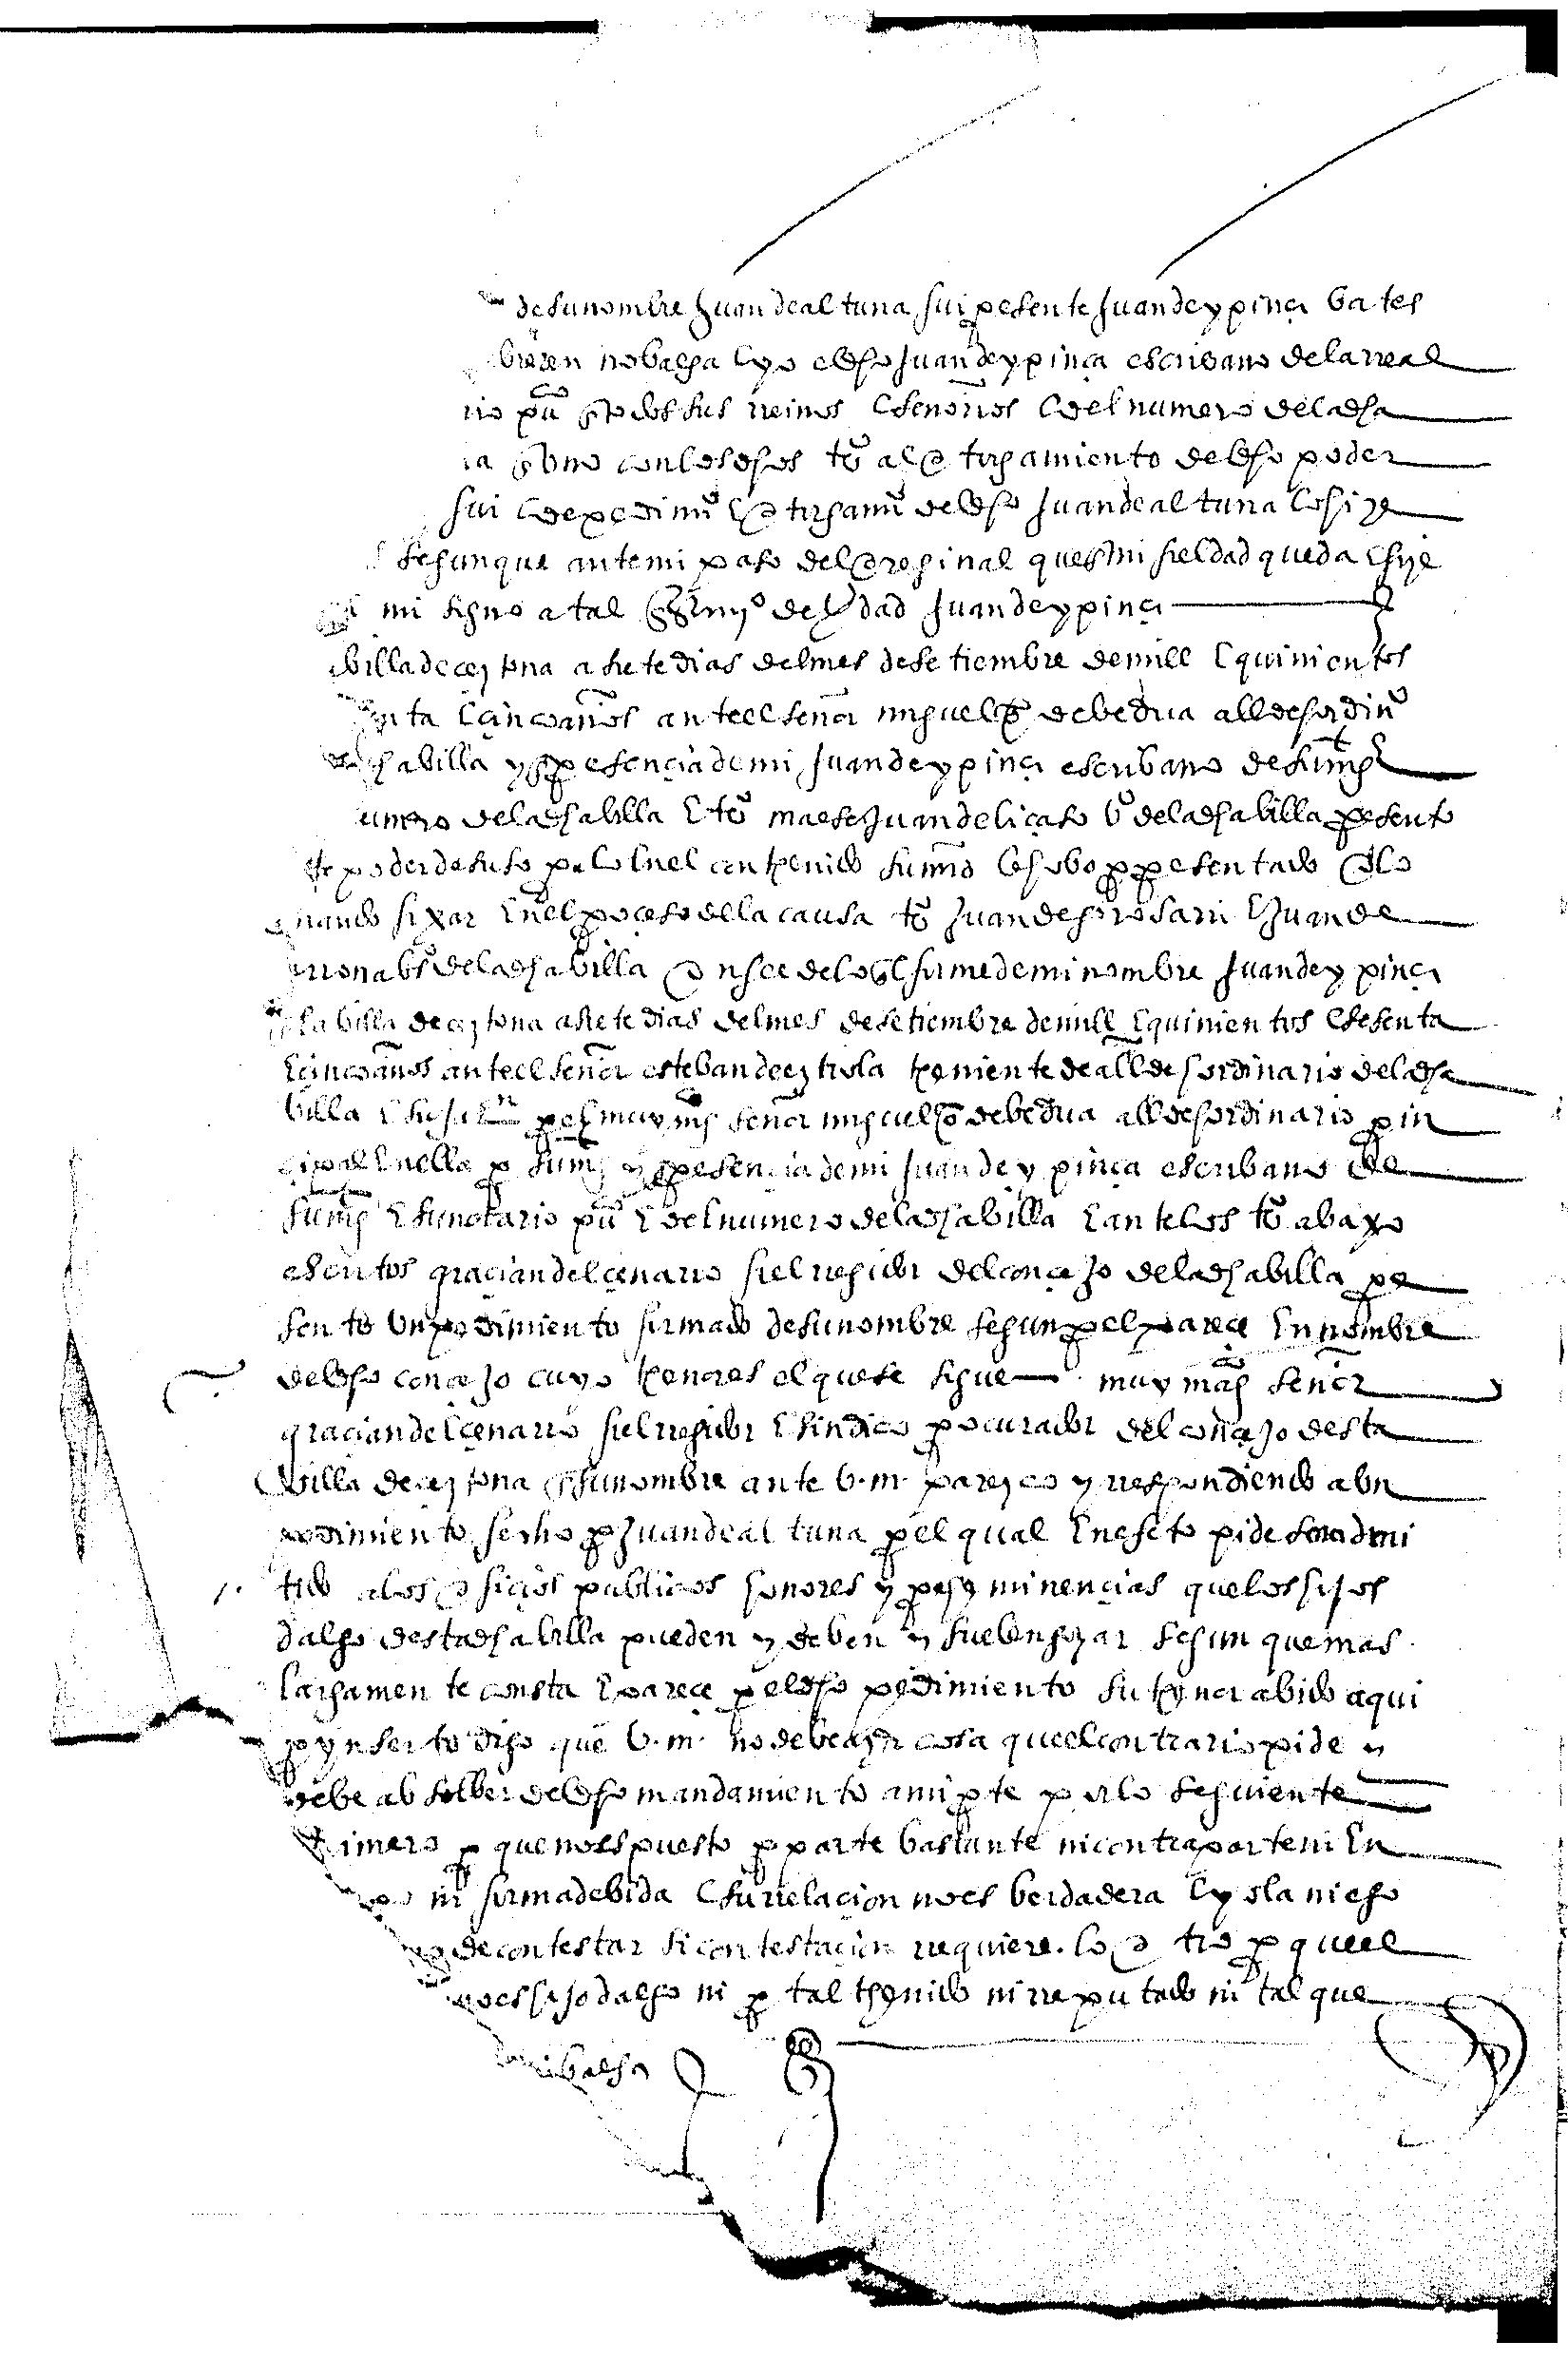 de su nombre Juan de altuna fui presente Juan de ypinça va tes
no balga E yo el dho Juan de ypinça escribano de la rreal
pu^co En todos sus rreinos E señorios E del numero de la dha
En vno con los dhos t^o al otorgamiento del dho poder
fui E de pedimi^o E otorgami^o del dho Juan de altuna lo fize
segun que ante mi paso del oreginal que En mi fieldad queda E fize
mi signo a tal En testimy^o de verdad Juan de ypinça
villa de cestona a siete dias del mes de setiembre de mill E quinientos
E cinco años ante el señor miguel de bedua allde hordin^o
dha billa y En presencia de mi Juan de ypinça escribano de su mag^t
de la dha billa E t^o maese Juan de liçaso v^o de la dha billa presento
poder de suso E lo En el contenido su md^o lo hobo por presentado E lo
mando fixar En el proceso de la causa t^o Juan de gorosarri E Juan de
v^os de la dha billa E en fee de lo ql firme de mi nombre Juan de ypinça
la billa de cestona a siete dias del mes de setiembre de mill E quinientos E sesenta
E cinco años ante el señor esteban de eztiola teniente de allde hordinario de la dha
billa por el muy mag^co señor miguel de bedua allde hordinario prin
cipal En ella por su mag^t y En presencia de mi Juan de ypinça escribano de
su mag^t E su notario pu^co E del numero de la dha billa E ante los t^o abaxo
escritos graçian de leçenarro fiel rregidor del conçejo de la dha billa pre
sento vn pedimiento firmado de su nombre segun por el parece En nombre
del dho conçejo cuyo tenor es el que se sigue muy mag^co señor
graçian de leçenarro fiel rregidor E sindico procurador del conçejo desta
villa de cestona En su nombre ante v. m. parezco y rrespondiendo a vn
pedimiento fecho por Juan de altuna por el qual En efeto pide ser admi
tido a los oficios publicos honores y preheminençias que los hijos
dalgo desta dha billa pueden y deben y suelen gozar segun que mas
largamente consta E parece por el dho pedimiento su tenor abido aqui
por ynserto digo que v. m. no debe azer cosa que el contrario pide y
debe absolber del dho mandamiento a mi parte por lo seguiente
primero por que no es puesto por parte bastante ni contra parte ni En
ni forma debida E su rrelaçion no es berdadera E yo la niego
de contestar si contestaçion rrequiere. lo otro por que el
no es hijodalgo ni por tal thenido ni rreputado ni tal que
balga